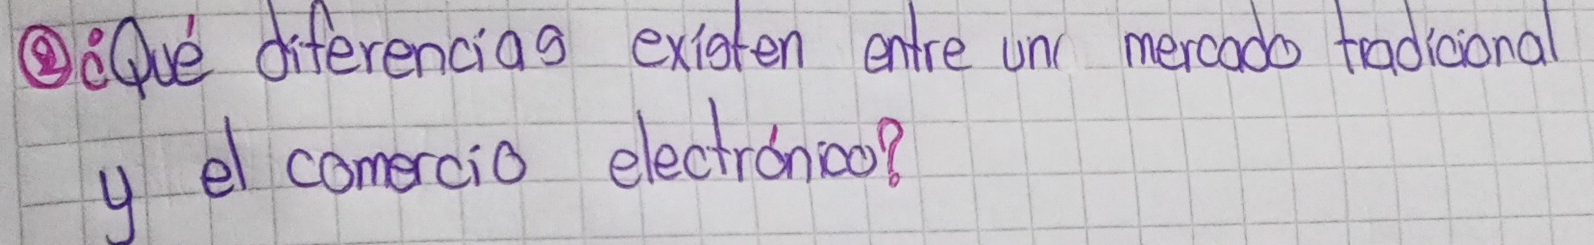 ② ¿Qué diferencias existen entre un mercado tradicional
y el comercio electrónico?